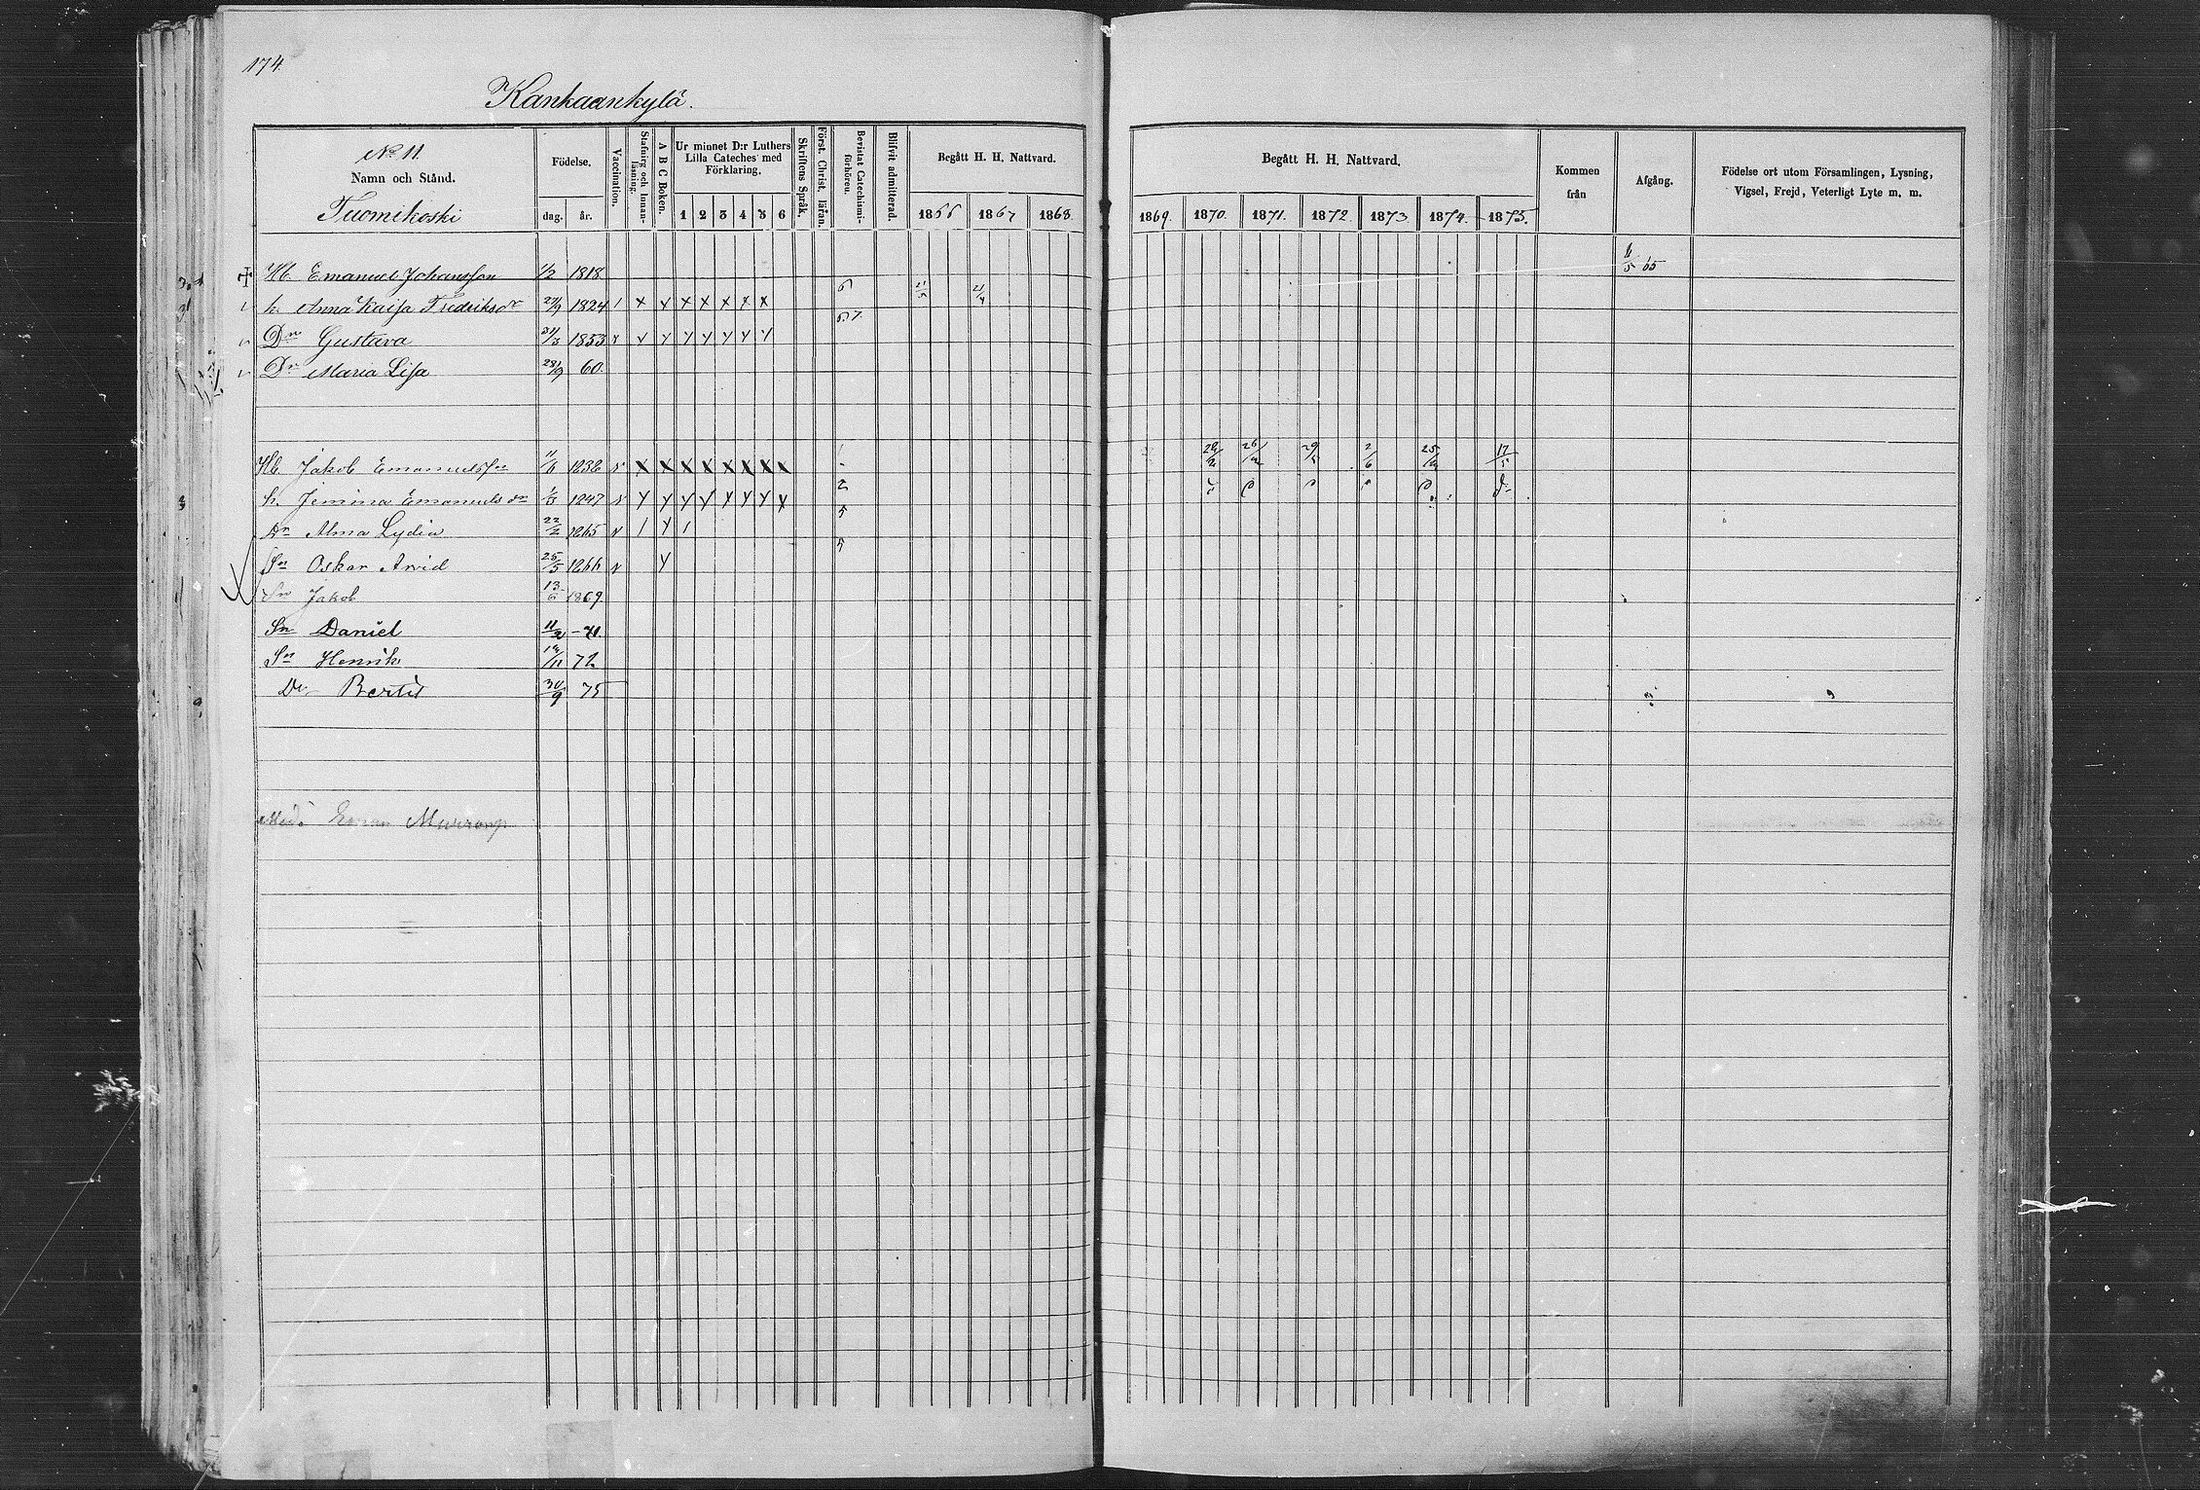 174
Kankaankylä.
No 11.
Namn och Stånd.
Tuomikoski
Födelse.
dag. år.
Vaccination.
Stafning och Innanläsning.
A B C Boken.
Ur minnet D:r Luthers Lilla Cateches med Förklaring.
1 2 3 4 5 6
Skriftens Språk.
Först. Christ. läran.
Bevistat Catechismiförhören.
Blifvit admitterad.
Begått H. H. Nattvard.
1866 1867 1868
Begått H. H. Nattvard.
1869. 1870. 1871. 1872. 1873. 1874. 1875.
Kommen från
Afgång.
Födelse ort utom Församlingen, Lysning, Vigsel, Frejd, Veterligt Lyte m. m.
Hb. Emanuel Johansson 1/2 1818. 6/5 65
h. Anna Kaisa Fredriksdr 1824 6
Dr Gustava 21/3 1853 6.7.
Dr Maria Lisa 28/9 60.
Hb. Jakob Emanuelsson 11/6 1836
h. Jemina Emanuelsdr 1847 2
Dr Alma Lydia 22/2 1865 5
Sn Oskar Arvid 25/5 1866 5
Sn Jakob 13/6 1869.
Sn Daniel 11/2 -71.
Sn Henrik 14/11 72
Dr Bertis 30/9 75